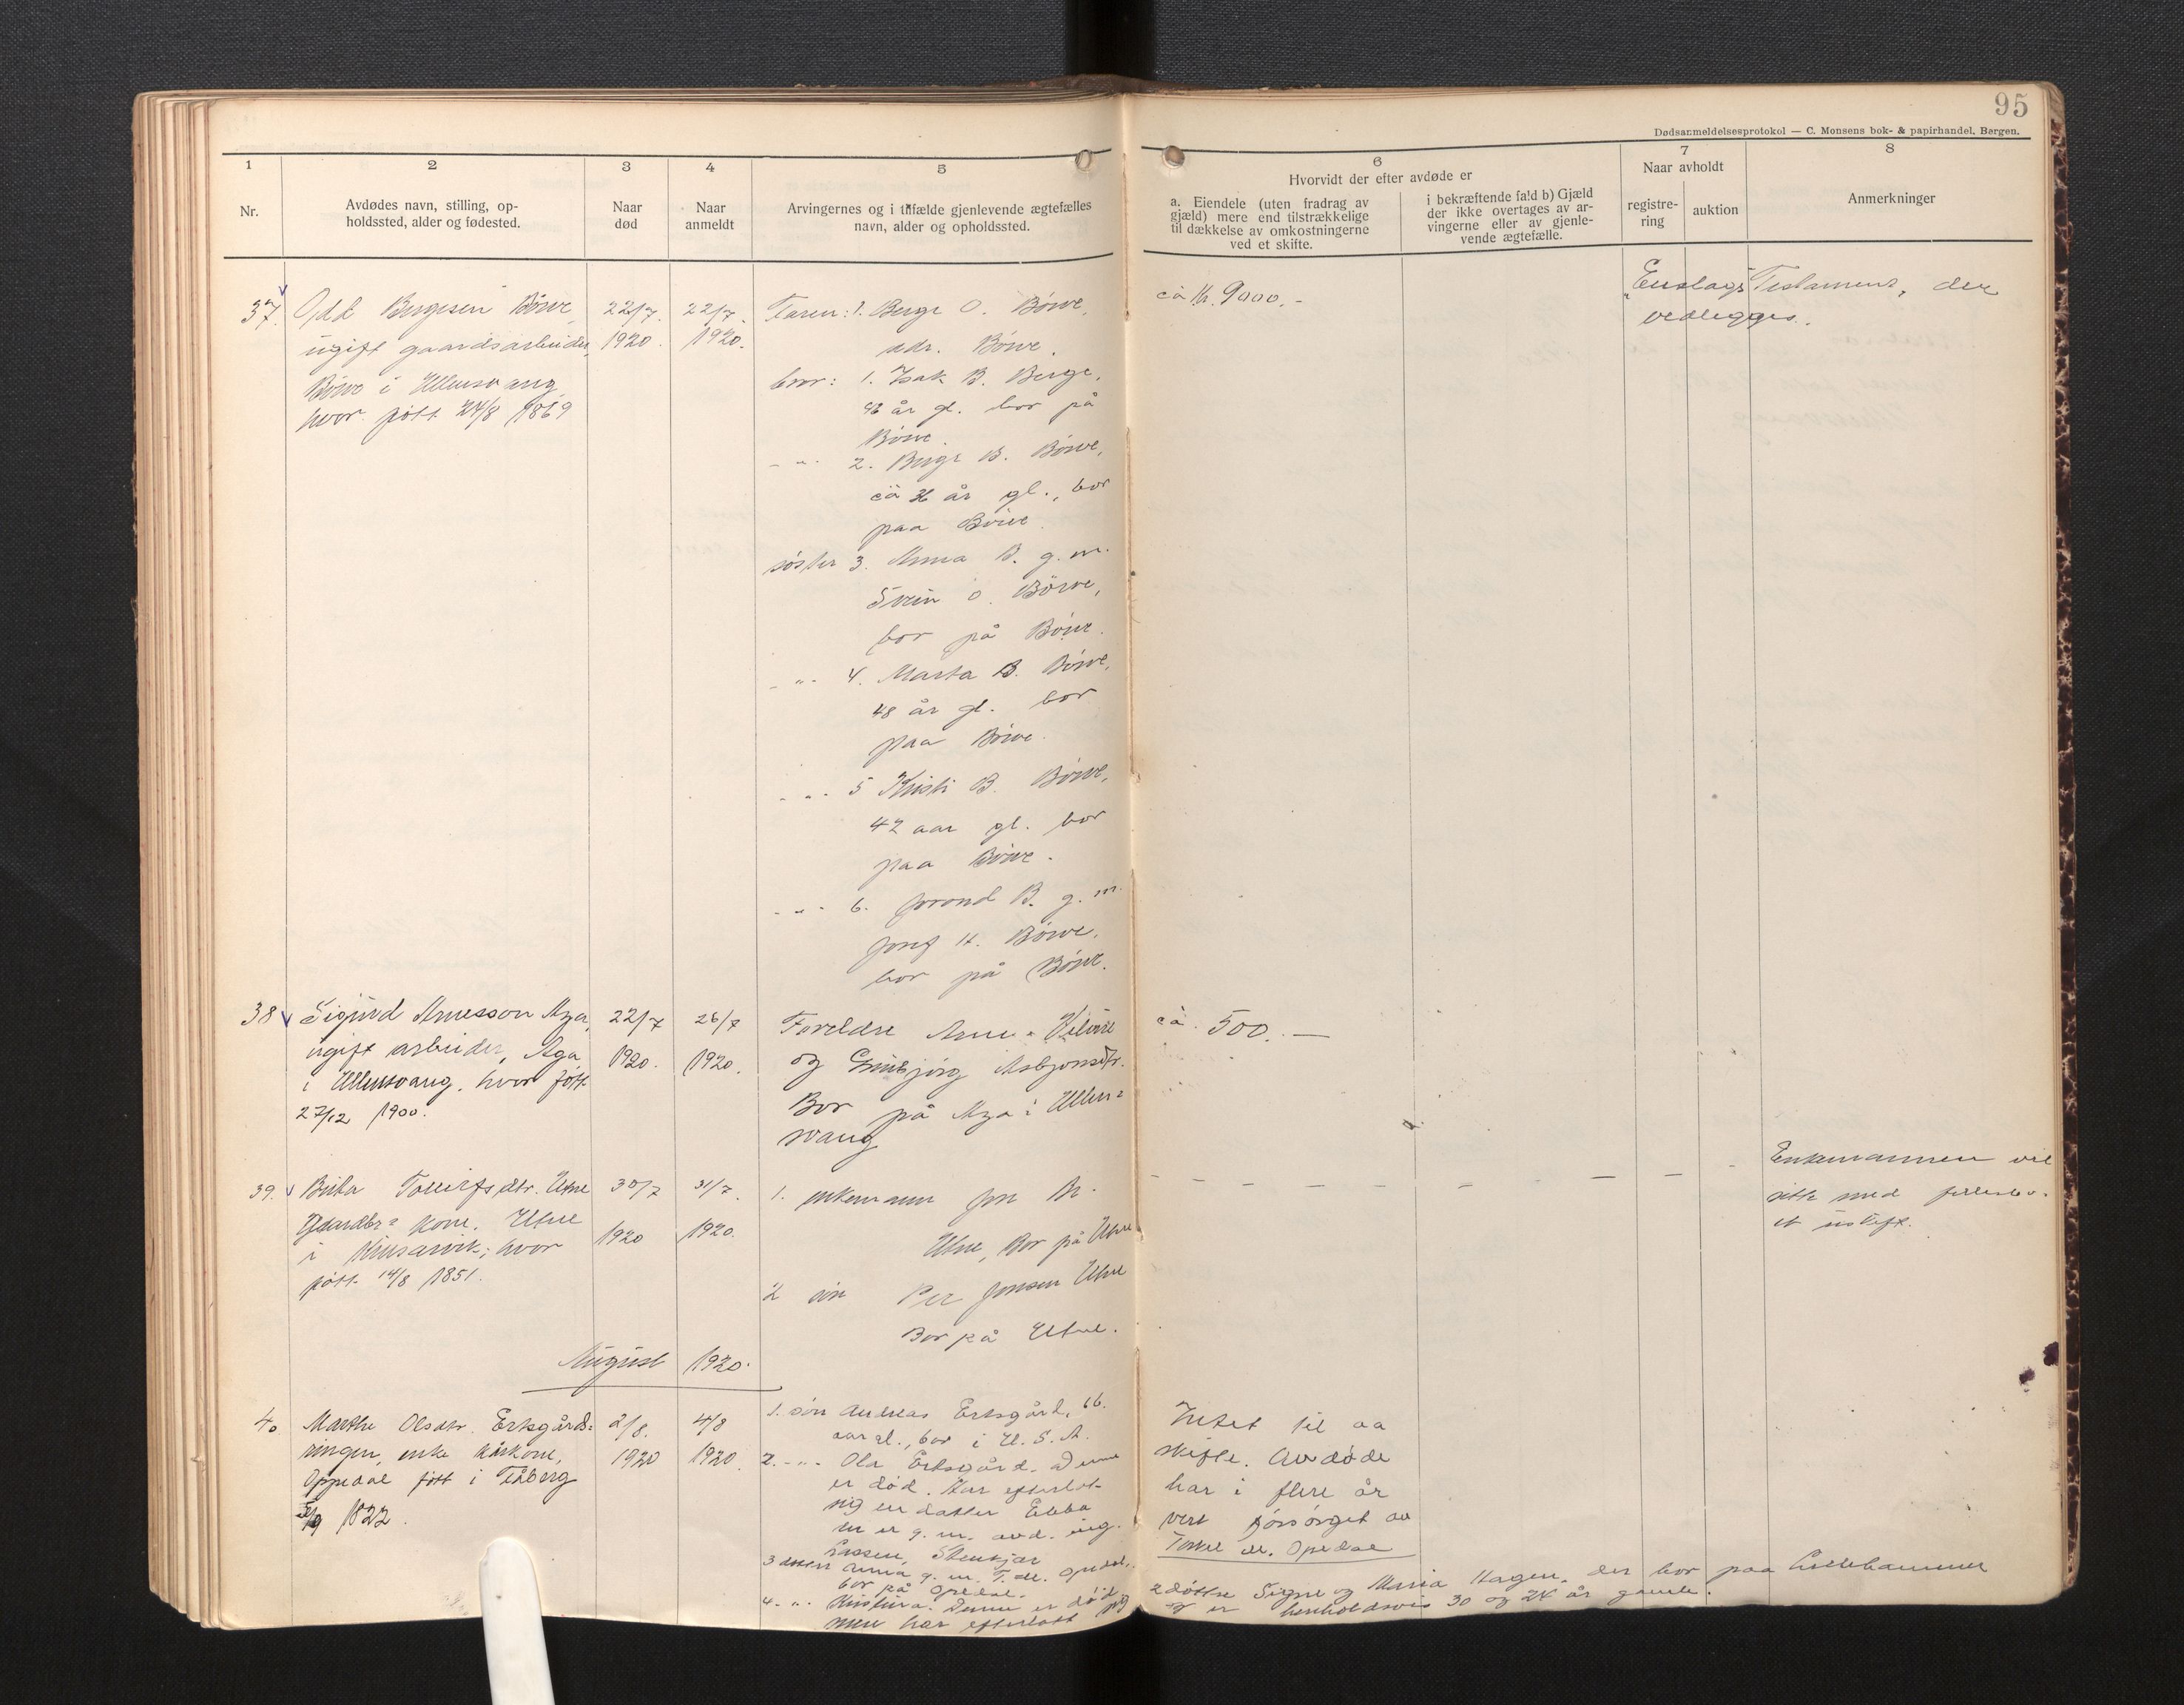 95
Dødsanmeldelsesprotokol — C. Monsens bok- & papirhandel, Bergen.
1
2
3
4
5
6
7
8
Nr.
Avdødes navn, stilling, op-
holdssted, alder og fødested.
Naar
død
Naar
anmeldt
Arvingernes og i tilfælde gjenlevende ægtefælles
navn, alder og opholdssted.
Hvorvidt der efter avdøde er
a. Eiendele (uten fradrag av
gjæld) mere end tilstrækkelige
til dækkelse av omkostningerne
ved et skifte.
i bekræftende fald b) Gjæld
der ikke overtages av ar-
vingerne eller av gjenle-
vende ægtefælle.
Naar avholdt
registre-
ring
auktion
Anmerkninger
37.
Odd Bergesen Börve,
ugift gaardsarbeider,
Börve i Ullensvang,
hvor född 24/8 1869
22/7.
1920.
22/7.
1920.
Faren: 1. Berge O. Börve,
adr. Börve.
bror: 1. Isak B. Berge,
år gl. bor på
Börve.
- " - 2. Berge B. Börve,
ca 36 år gl., bor
paa Börve.
söster 3. Anna B. g. m.
Svein O. Börve,
bor på Börve.
- " - 4. Marta B. Börve,
48 år gl. bor
paa Börve.
- " - 5 Kristi B. Börve,
42 aar gl. bor
paa Börve.
- " - 6. Jorond B. g. m.
Josef H. Börve,
bor på Börve.
ca Kr. 9000.-
Testament, der
vedlegges.
38
Sigurd Arnesson Aga,
ugift arbeider, Aga
i Ullensvang, hvor fött
27/12 1900.
22/7
1920.
26/7
1920.
Foreldre Arne
og Guibjörg Asbjonsdtr.
Bor på Aga i Ullen=
svang
ca. 500.—
39.
Brita Tolleifsdtr. Utne
Gaardbr= kone, Utne
i Kinsarvik, hvor
fött 14/8 1851.
30/7
1920
31/7.
1920.
1. enkemann Jon
Utne, Bor på Utne
2 sön Per Jonsen Utne
Bor på Utne.
Enkemannen vil
sitte med fellesbo-
et uskift.
August 1920.
40
Marthe Olsdtr. Ersgård=
ringen, enke kårkone,
Oppedal fött i Fåberg
1822.
2/8.
1920
4/8
1920.
1. sön Andreas Ersgård, 66.
aar gl., bor i U. S. A.
2. - " - Ola Ersgård. Denne
er död. Har efterlat
sig en datter Ebba
som er g. m. avd. ing.
Lassen, Stenkjær
3 datter Anna g. m. T. M. Opedal,
bor på Opedal.
4. - " - Kristina. Denne er död
men har efterlatt sig
2 döttre Signe og Maria Hagen, der bor paa Lillehammer
og er henholdsvis 30 og 24 år gamle.
Intet til aa
skifte. Avdöde
har i flere år
vert forsörget av
Torkel M. Opedal